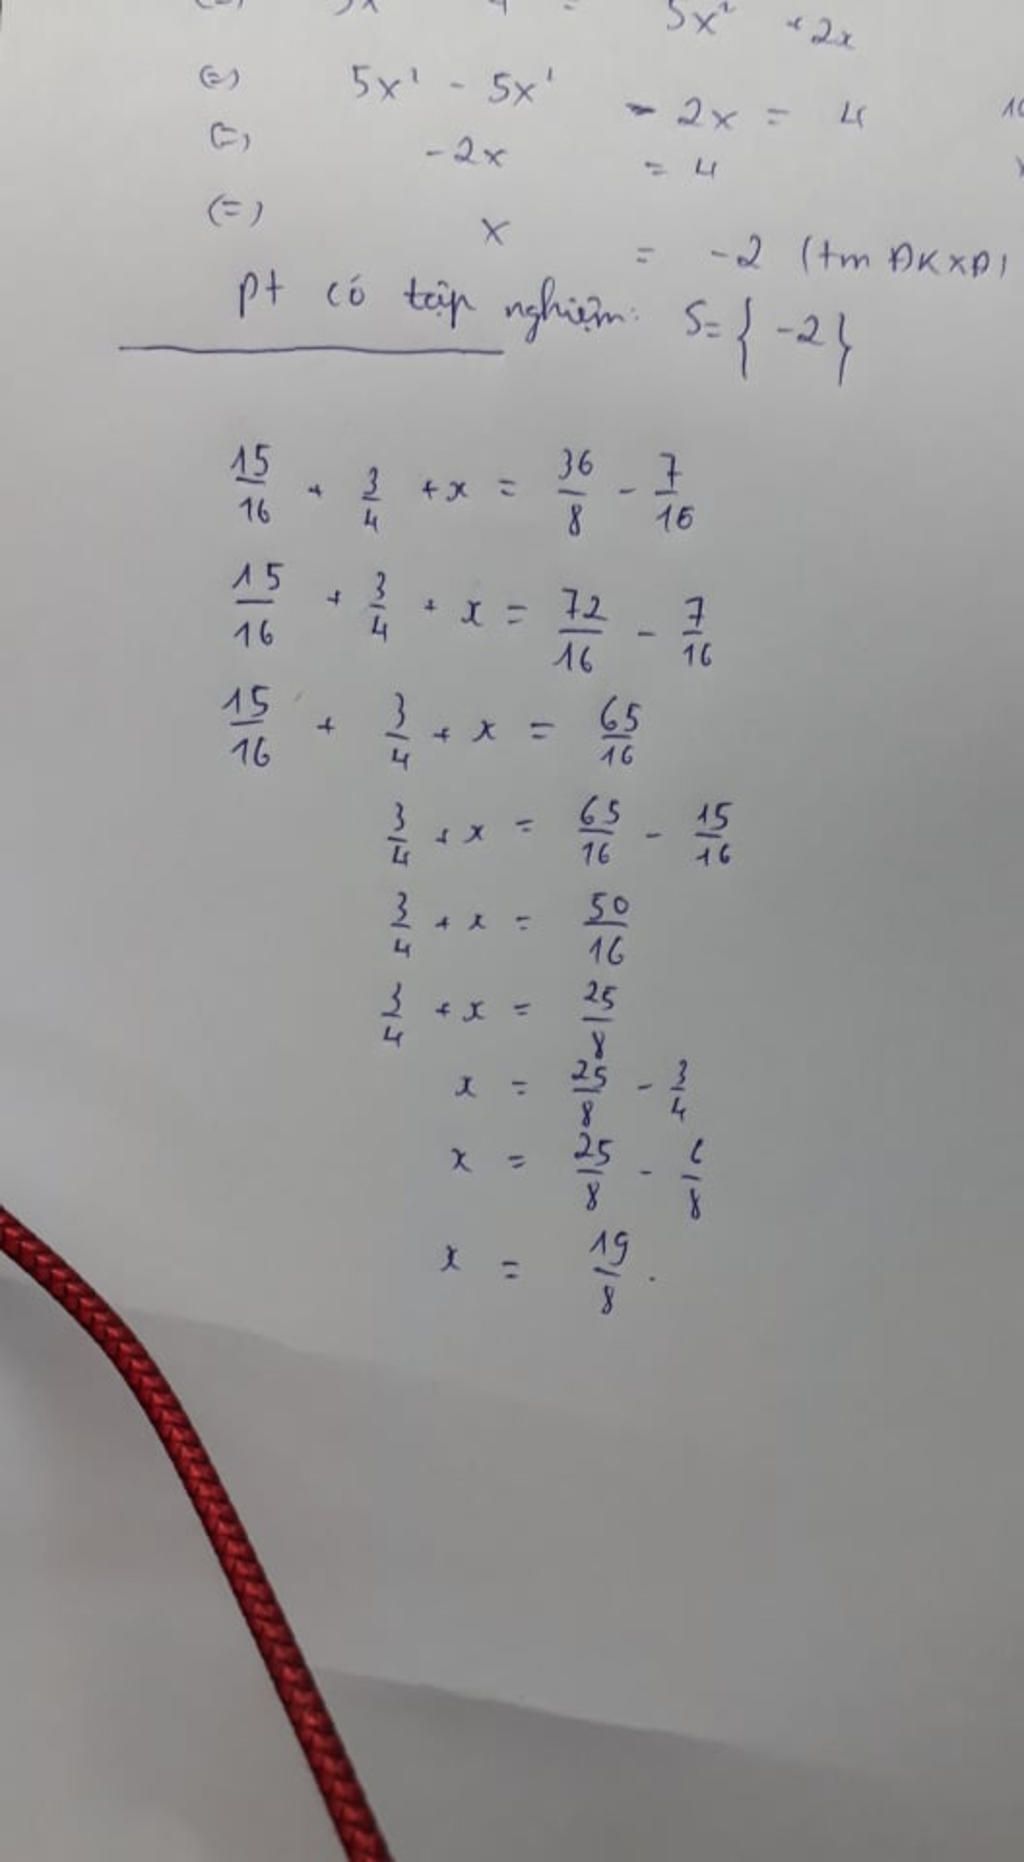 5x² + 2x
(=) 5x¹ - 5x¹ - 2x = 4
(=) -2x = 4
(=) x = -2 (tm ĐKXĐ)
pt có tập nghiệm: S = { -2 }
15/16 + 3/4 + x = 36/8 - 7/16
15/16 + 3/4 + x = 72/16 - 7/16
15/16 + 3/4 + x = 65/16
3/4 + x = 65/16 - 15/16
3/4 + x = 50/16
3/4 + x = 25/8
x = 25/8 - 3/4
x = 25/8 - 6/8
x = 19/8.